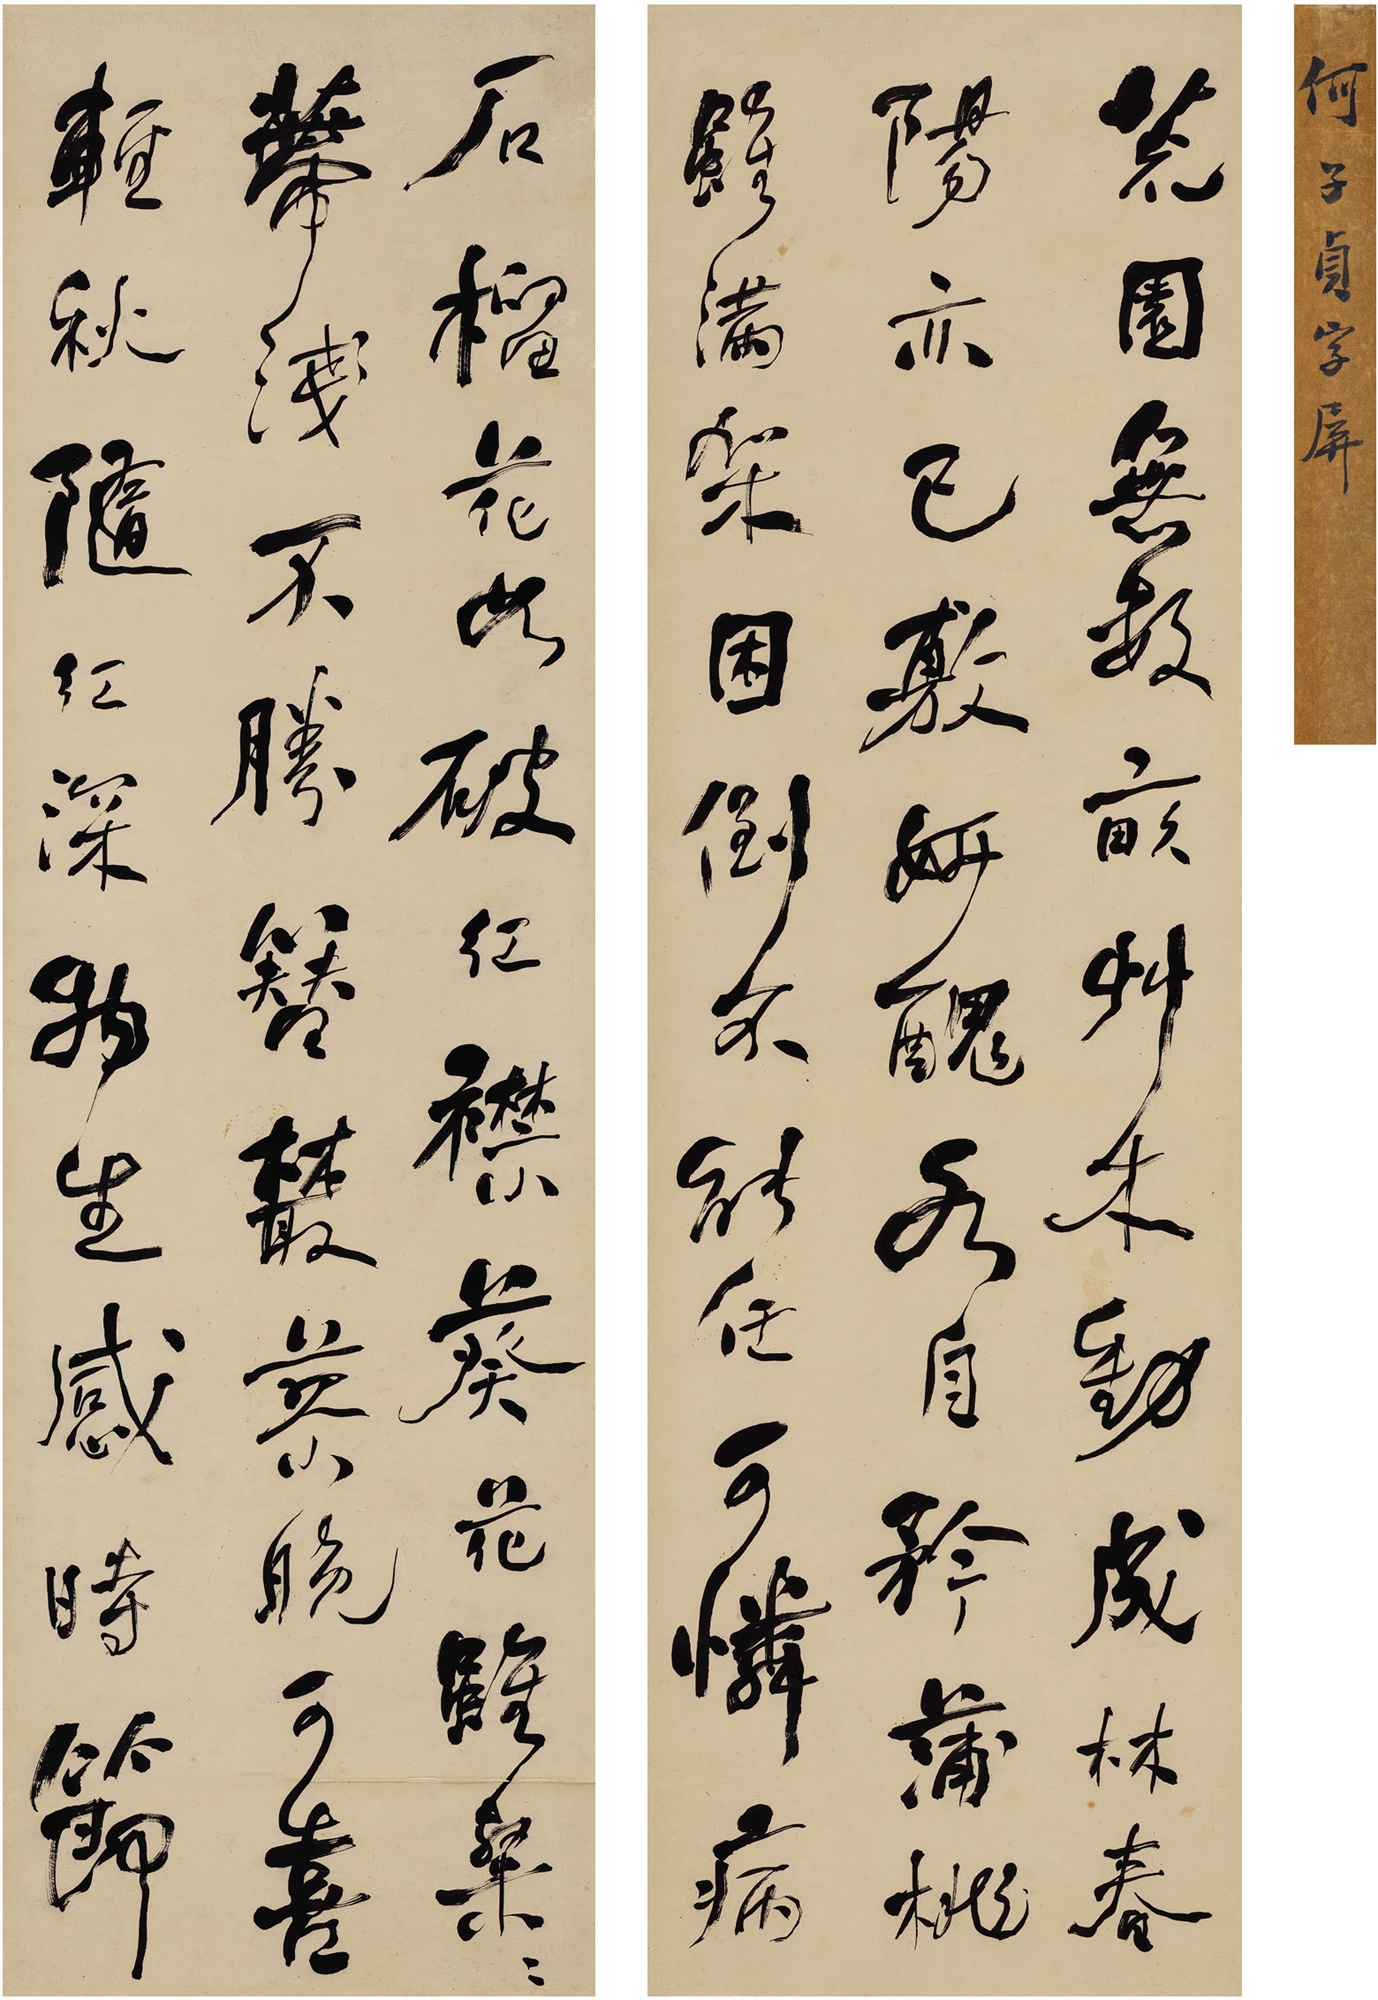 何子貞字屏
荒園無數畝艸木動成林春
陽亦已敷妍醜各自矜蒲桃
雖滿架囷倒不能任可憐病
石榴花如破紅襟葵花雖粲〻
蔕淺不勝簪叢蓼晚可喜
輕秋隨紅深物生感時節